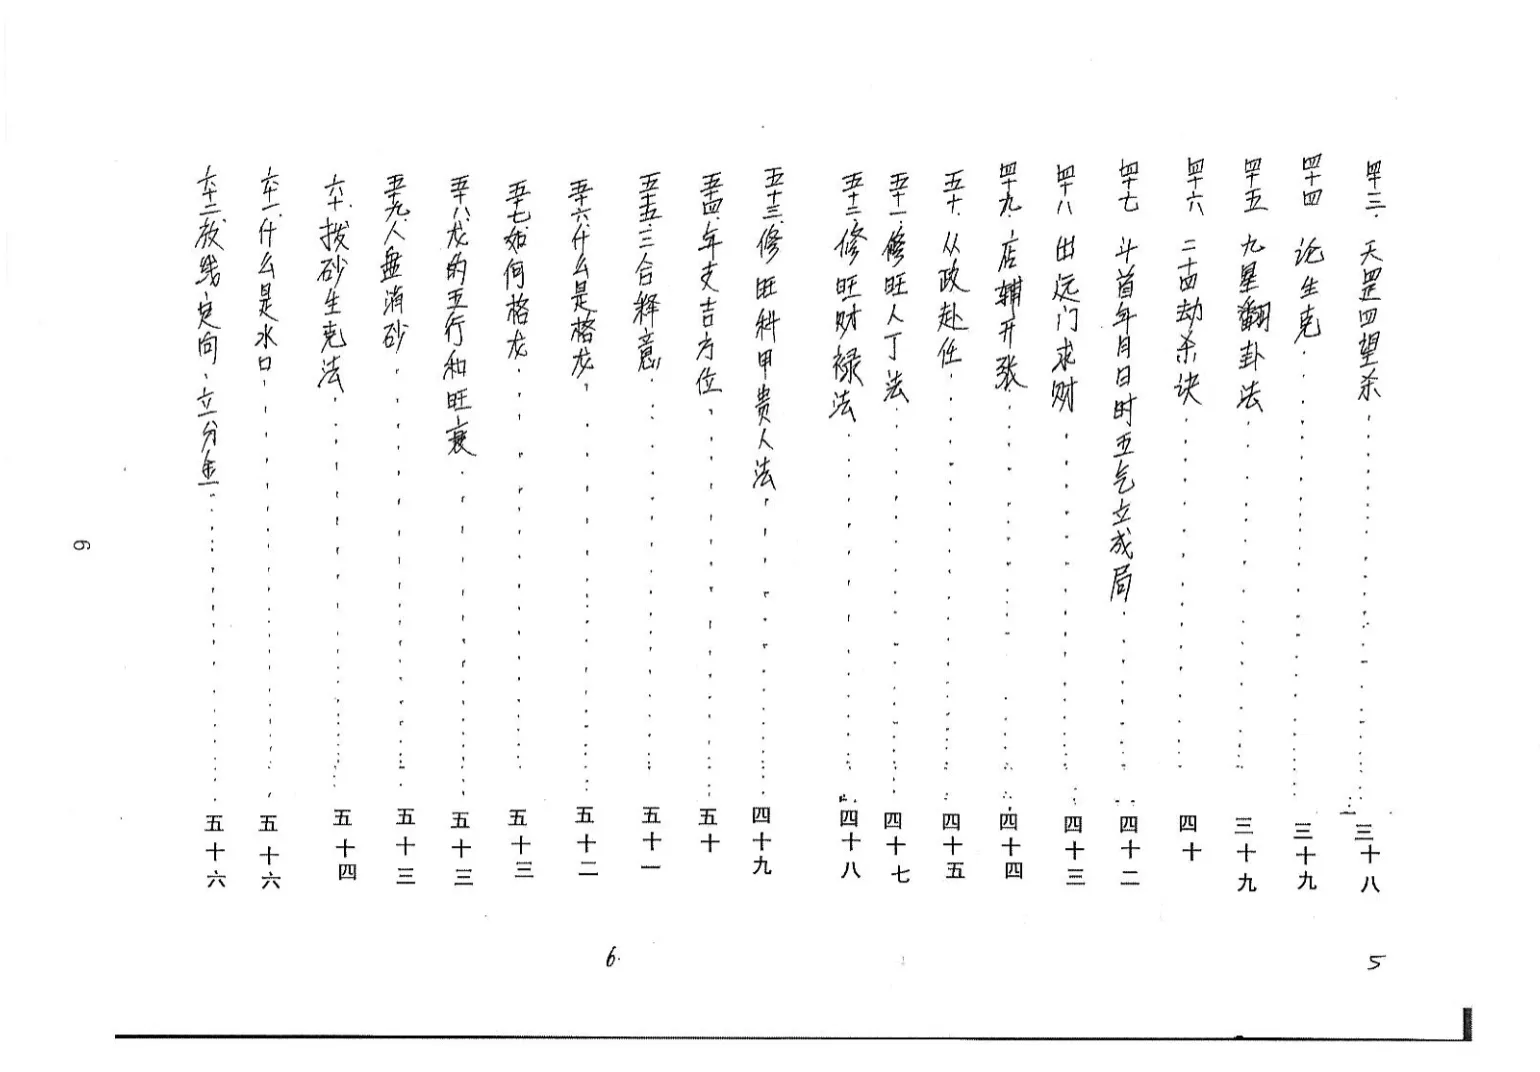 四十三、天罡四望杀……三十八
四十四 论生克……三十九
四十五 九星翻卦法……三十九
四十六 二十四劫杀诀……四十
四十七 斗首年月日时五气立成局……四十二
四十八 出远门求财……四十三
四十九、店铺开张……四十四
五十、从政赴任……四十五
五十一、修旺人丁法……四十七
五十二、修旺财禄法……四十八
五十三、修旺科甲贵人法……四十九
五十四、年支吉方位……五十
五十五、三合释意……五十一
五十六、什么是格龙……五十二
五十七、如何格龙……五十三
五十八、龙的五行和旺衰……五十三
五十九、人盘消砂……五十三
六十、拨砂生克法……五十四
六十一、什么是水口……五十六
六十二、放线定向、立分金……五十六
5
6.
6